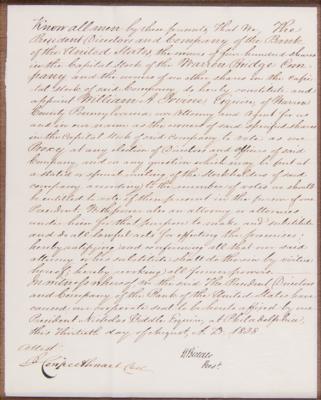 Know all men by these presents, that We, The
President Directors and Company of the Bank
of the United States, the owners of four hundred shares
in the Capital Stock of the Warren Bridge Com-
pany and the owners of no other shares in the capi-
tal stock of said Company, do hereby constitute and
appoint William A. Irvine Esquire, of Warren
County Pennsylvania our Attorney and Agent for us
and in our name as the owners of said aforesaid shares
in the Capital Stock of said Company to vote as our
Proxy at any election of Directors and Officers of said
Company, and on any question which may be put at
a stated or special meeting of the Stockholders of said
company according to the number of votes we should
be entitled to vote if then present in the person of our
President. With power also an attorney or attornies
under him for that purpose to make and substitute
and do all lawful acts for effecting the premises:
hereby ratifying and confirming all that our said
attorney or his substitute shall do therein by virtue
hereof, hereby revoking all former powers.
In witness whereof, we the said The President Directors
and Company of the Bank of the United States have
caused our corporate seal to be hereto affixed by our
President Nicholas Biddle Esquire, at Philadelphia,
this Thirtieth day of August, A.D. 1838
Attest N Biddle
Prest.